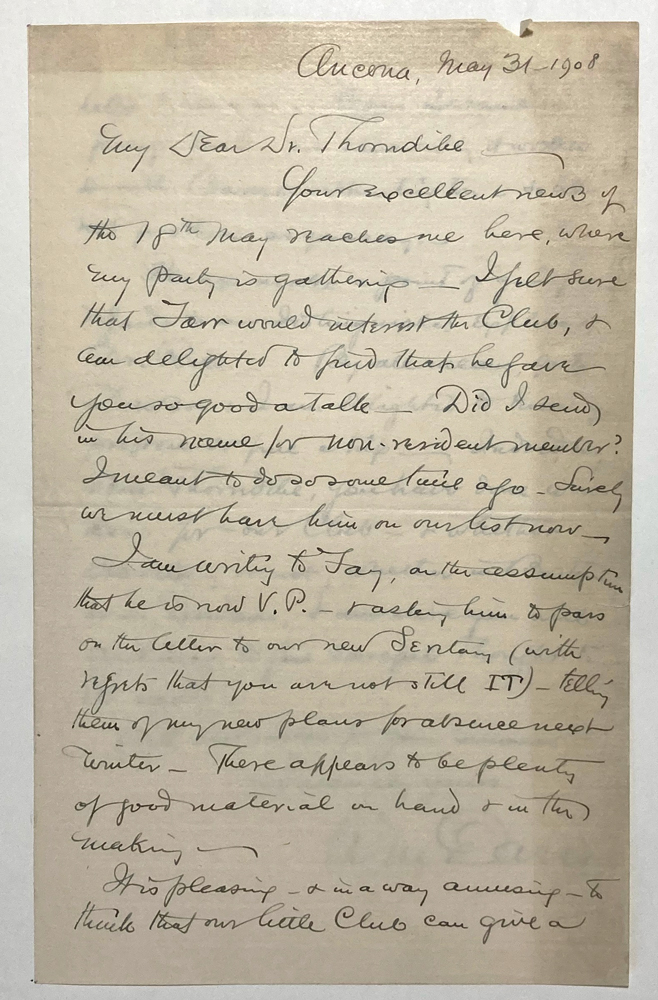 Ancona, May 31-1908
My Dear Dr. Thorndike —
Your excellent news of
the 18th May reaches me here, where
my party is gathering — I felt sure
that Tarr would interest the Club, &
am delighted to find that he gave
you so good a talk — Did I send
in his name for non-resident member?
I meant to do so some time ago - Surely
we must have him on our list now —
I am writing to Fay, on the assumption
that he is now V. P. — & asking him to pass
on the letter to our new Secretary (with
regrets that you are not still IT) — telling
them of my new plans for absence next
Winter — There appears to be plenty
of good material on hand & in the
making —
It is pleasing - & in a way amusing - to
think that our little Club can give a